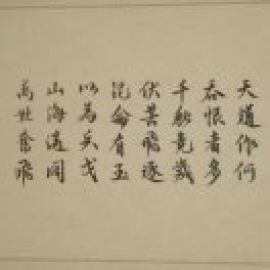 天道作何
吞恨者多
千秋竞歲
伏昔飛逐
昆侖有玉
以為兵戈
山海遥阔
萬世奮飛